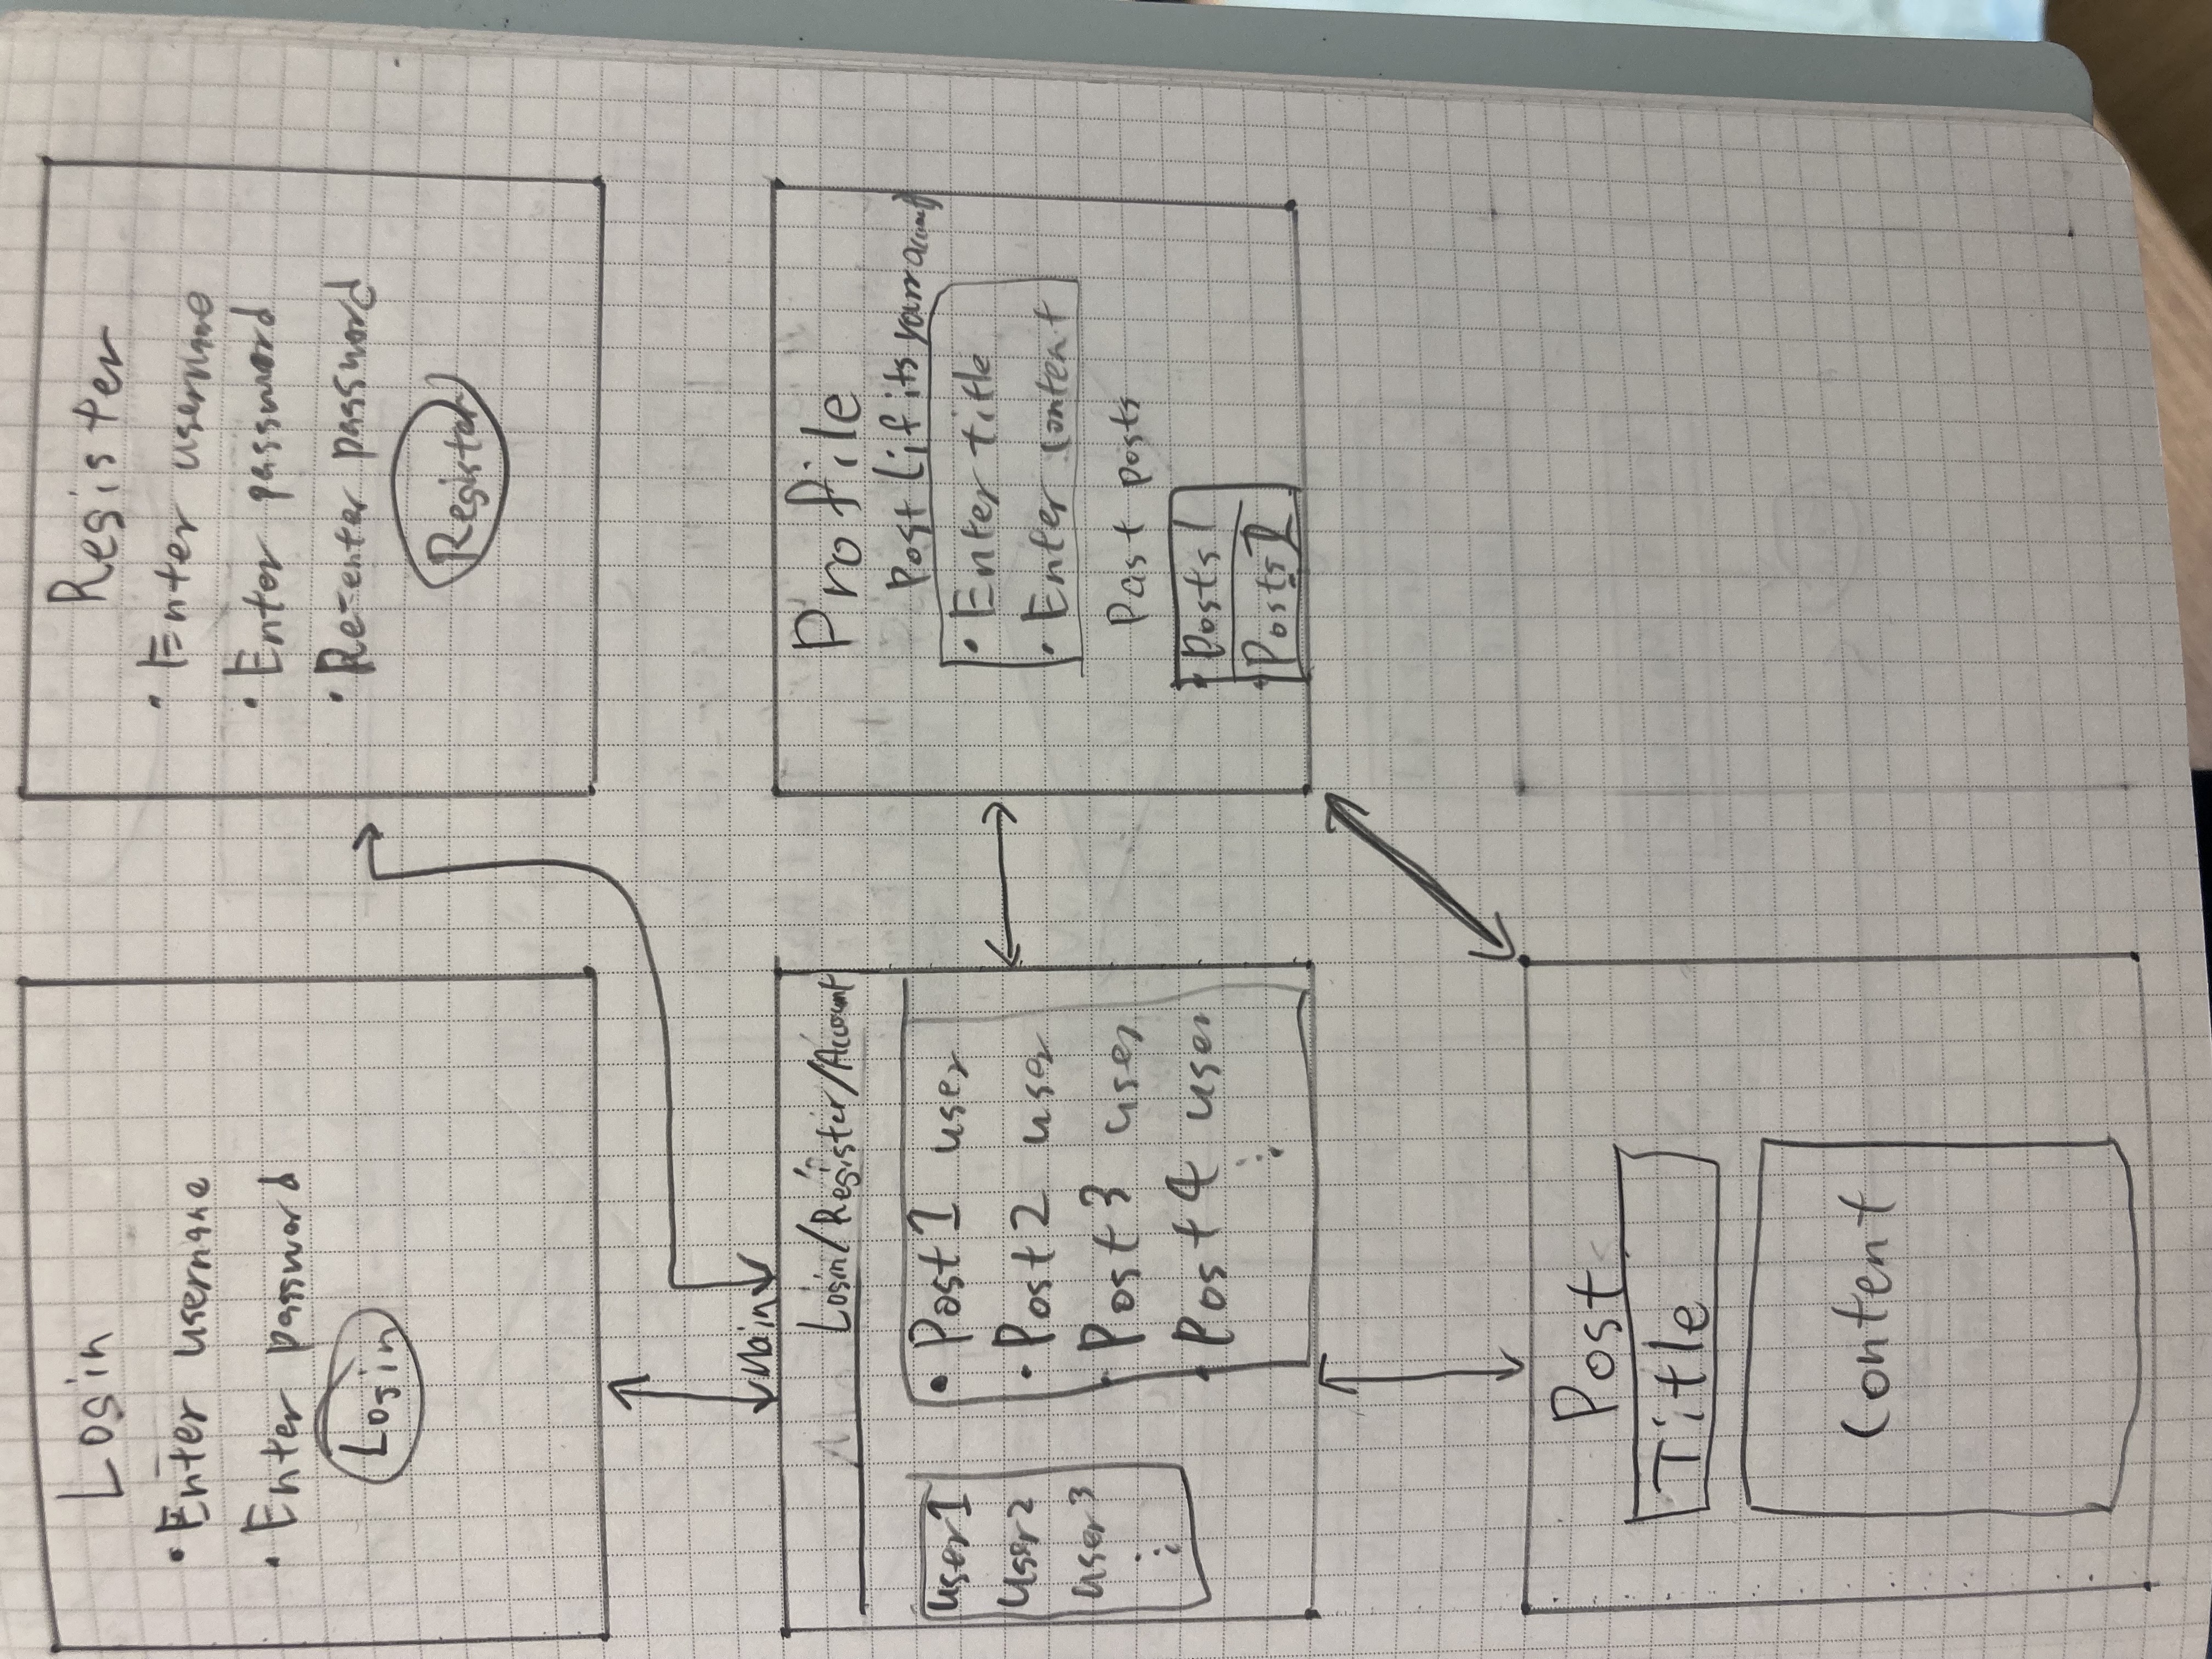 Login
• Enter username
• Enter password
Login
Register
• Enter username
• Enter password
• Re-enter password
Register
Main
Login/Register/Account
user1
user2
user3
⋮
• Post1 user
• Post2 user
• Post3 user
• Post4 user
⋮
Profile
Post (if its your account)
• Enter title
• Enter content
Past posts
• Posts1
• Posts2
Post
Title
Content